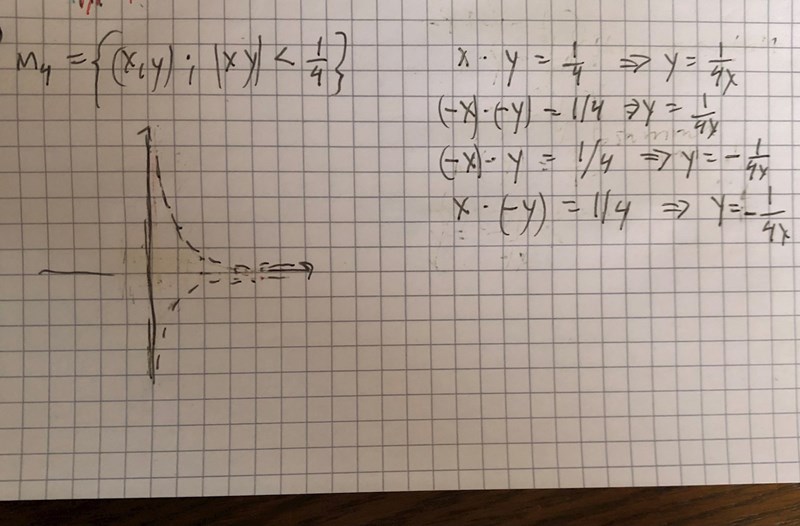 M₄ = {(x,y) ; |xy| < 1/4}
x · y = 1/4 ⇒ y = 1/4x
(-x) · (-y) = 1/4 ⇒ y = 1/4x
(-x) · y = 1/4 ⇒ y = - 1/4x
x · (-y) = 1/4 ⇒ y = - 1/4x